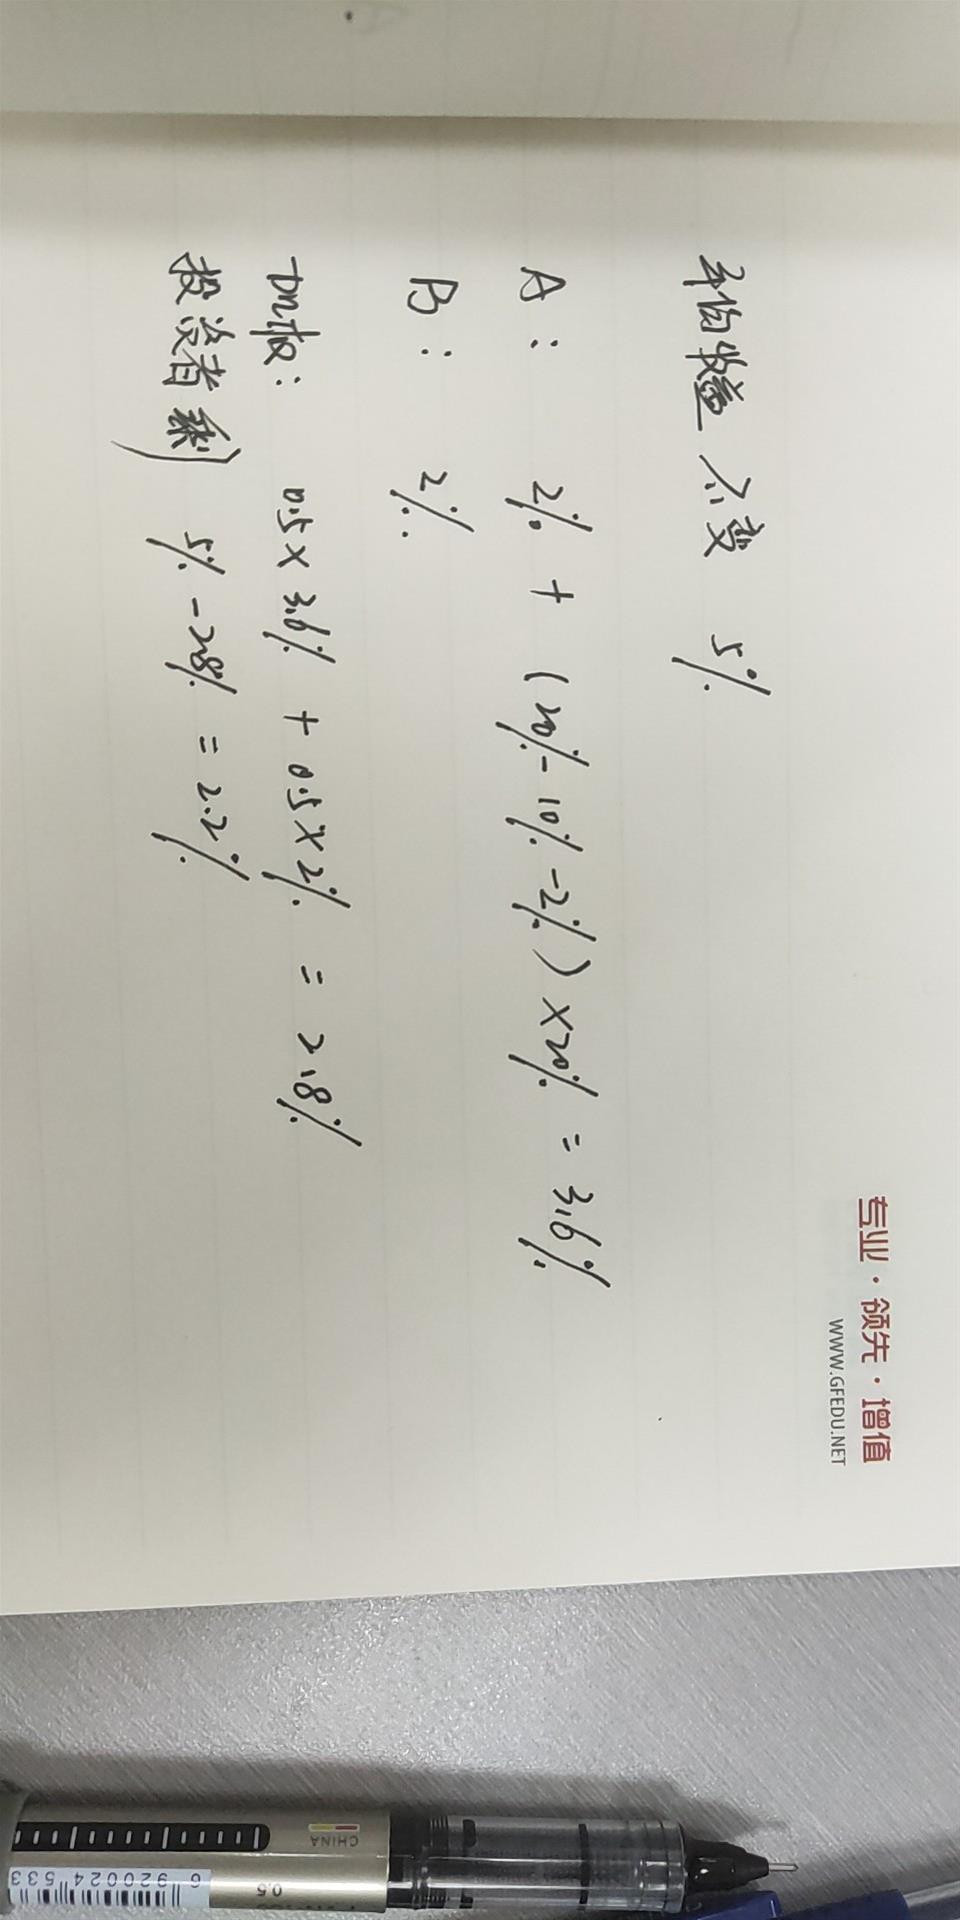 专业·领先·增值
WWW.GFEDU.NET
平均收益 不变 5%
A: 2% + (20%-10%-2%)×20% = 3.6%
B: 2%
加权: 0.5×3.6% + 0.5×2% = 2.8%
投资者剩 5%-2.8% = 2.2%
CHINA
0.5
6 920024 533